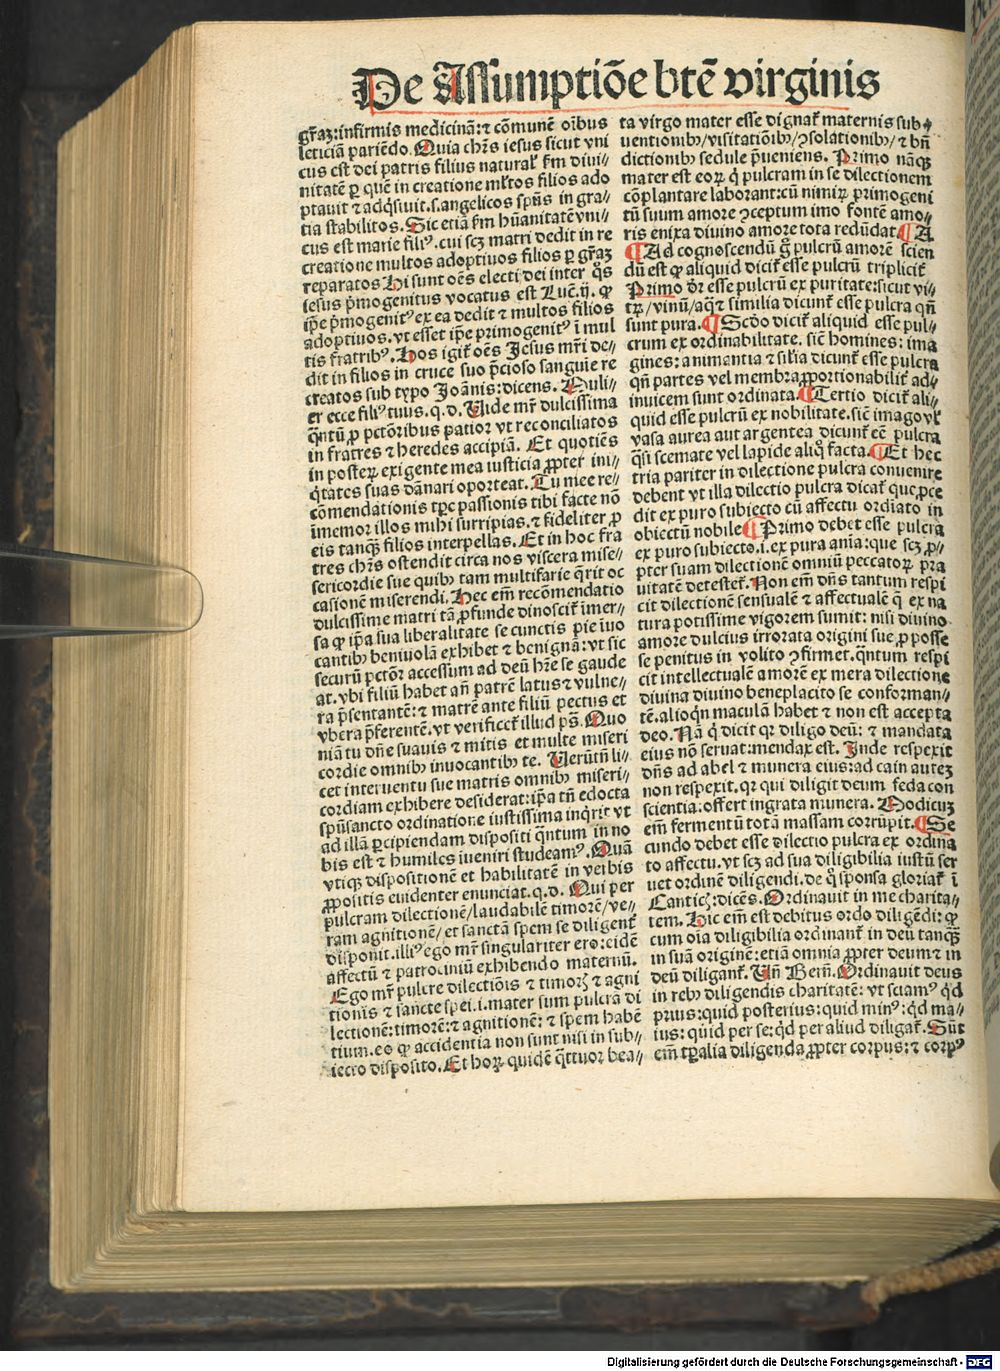 De Assumptiōe btē virginis
gr̄az: infirmis medicinā: ⁊ cōmunē oībus
leticiaꝫ pariēdo. Quia chr̄s iesus sicut vni
cus est dei patris filius natural' ẜm diui/
nitatē ꝑ quē in creatione ml'tos filios ado
ptauit ⁊ adq̄siuit. s. angelicos spūs in gra/
tia stabilitos. Sic etiā ẜm hūanitatē vni/
cus est marie filiꝰ. cui scꝫ matri dedit in re
creatione multos adoptiuos filios ꝑ gr̄az
reparatos Hi sunt oēs electi dei inter q̊s
iesus p̄mogenitus vocatus est Luc̄. ij. ꝙ
ip̄e p̄mogenitꝰ ex ea dedit ⁊ multos filios
adoptiuos. vt esset ip̄e primogenitꝰ ī mul
tis fratribꝰ. Hos igit̄ oēs Jesus mr̄i de/
dit in filios in cruce suo p̄cioso sanguīe re
creatos sub typo Joānis: dicens. Muli/
er ecce filiꝰ tuus. q. d. Vide mr̄ dulcissima
q̄ntū ꝓ pctōribus patior vt reconciliatos
in fratres ⁊ heredes accipiā. Et quotiēs
in posteꝝ exigente mea iusticia ꝓpter ini/
q̇tates suas dānari oporteat. Tu mee re/
cōmendationis tꝑe passionis tibi facte nō
īmemor illos mihi surripias. ⁊ fideliter ꝓ
eis tanqꝫ filios interpellas. Et in hoc fra
tres chr̄s ostendit circa nos viscera mise/
sericordie sue quibꝰ tam multifarie q̄rit oc
casionē miserendi. Hec em̄ recōmendatio
dulcissime matri tā ꝓfunde dinoscit̄ īmer/
sa ꝙ ip̄a sua liberalitate se cunctis pie īuo
cantibꝰ beniuolā exhibet ⁊ benignā: vt sic
securū pctōꝝ accessum ad deū hr̄e se gaude
at. vbi filiū habet an̄ patrē latus ⁊ vulne/
ra p̄sentantē: ⁊ matrē ante filiū pectus et
vbera p̄ferentē. vt verificet̄ illud ps̄. Quo
niā tu dn̄e suauis ⁊ mitis et multe miseri
cordie omnibꝰ inuocantibꝰ te. Verūtn̄ li/
cet interuentu sue matris omnibꝰ miseri/
cordiam exhibere desiderat: ip̄a tn̄ edocta
spūsancto ordinatione iustissima inq̇rit vt
ad illā ꝑcipiendam dispositi q̄ntum in no
bis est ⁊ humiles īueniri studeamꝰ. Quā
vtiqꝫ dispositionē et habilitatē in verbis
ꝓpositis euidenter enunciat. q. d. Qui per
pulcram dilectionē / laudabilē timorē / ve/
ram agnitionē / et sanctā spem se diligent̄
disponit. illiꝰ ego mr̄ singulariter ero: eidē
affectū ⁊ patrociniū exhibendo maternū.
Ego mr̄ pulcre dilectiōis ⁊ timoris ⁊ agni
tionis ⁊ sancte spei. i. mater sum pulcrā di
lectionē: timorē: ⁊ agnitionē: ⁊ spem habē
tium. eo ꝙ accidentia non sunt nisi in sub/
iecto disposito. Et hoꝝ quidē q̄ttuor bea/
ta virgo mater esse dignat̄ maternis sub/
uentionibꝰ / visitatiōibꝰ / ꝯsolationibꝰ / ⁊ bn̄
dictionibꝰ sedule p̄ueniens. Primo nāqꝫ
mater est eoꝝ q̇ pulcram in se dilectionem
cōplantare laborant: cū nimiꝝ primogeni
tū suum amore ꝯceptum imo fontē amo/
ris enixa diuino amore tota redūdat. ¶ A
¶ Ad cognoscendū g̊ pulcrū amorē scien
dū est ꝙ aliquid dicit̄ esse pulcrū triplicit̄
Primo dr̄ esse pulcrū ex puritate: sicut vi/
tꝝ / vinū / aq̄ ⁊ similia dicunt̄ esse pulcra qn̄
sunt pura. ¶ Scdo dicit̄ aliquid esse pul/
crum ex ordinabilitate. sic̄ homines: ima
gines: animantia ⁊ sil'ia dicunt̄ esse pulcra
qn̄ partes vel membra ꝓportionabilit̄ ad/
inuicem sunt ordinata. ¶ Tertio dicit̄ ali/
quid esse pulcrū ex nobilitate. sic̄ imago vl'
vasa aurea aut argentea dicunt̄ eē pulcra
q̄si scemate vel lapide aliq̊ facta. ¶ Et hec
tria pariter in dilectione pulcra conuenire
debent vt illa dilectio pulcra dicat̄ que ꝓce
dit ex puro subiecto cū affectu ordiato in
obiectū nobile ¶ Primo debet esse pulcra
ex puro subiecto. i. ex pura anīa: que scꝫ ꝓ/
pter suam dilectionē omniū peccatoꝝ pra
uitatē detestet̄. Non em̄ dn̄s tantum respi
cit dilectionē sensualē ⁊ affectualē q̄ ex na
tura potissime vigorem sumit: nisi diuino
amore dulcius irrorata origini sue ꝓ posse
se penitus in volito ꝯfirmet. q̄ntum respi
cit intellectualē amorē ex mera dilectione
diuina diuino beneplacito se conforman/
tē. alioqn̄ maculā habet ⁊ non est accepta
deo. Nā q̇ dicit qꝛ diligo deū: ⁊ mandata
eius nō seruat: mendax est. Inde respexit
dn̄s ad abel ⁊ munera eius: ad cain autez
non respexit. qꝛ qui diligit deum feda con
scientia: offert ingrata munera. Modicuꝫ
em̄ fermentū totā massam corrūpit. ¶ Se
cundo debet esse dilectio pulcra ex ordina
to affectu. vt scꝫ ad sua diligibilia iustū ser
uet ordinē diligendi. de q̊ sponsa gloriat̄ ī
Canticꝭ: dicēs. Ordinauit in me charita/
tem. Hic em̄ est debitus ordo diligēdi: ꝙ
cum oīa diligibilia ordinant̄ in deū tanqꝫ
in suā originē: etiā omnia ꝓpter deum ⁊ in
deū diligant̄. Vn̄ Bern̄. Ordinauit deus
in rebꝰ diligendis charitatē: vt sciamꝰ q̇d
prius: quid posterius: quid minꝰ: q̇d ma/
ius: quid per se: q̇d per aliud diligat̄. Sūt
em̄ tꝑalia diligenda ꝓpter corpus: ⁊ corpꝰ
Digitalisierung gefördert durch die Deutsche Forschungsgemeinschaft - DFG